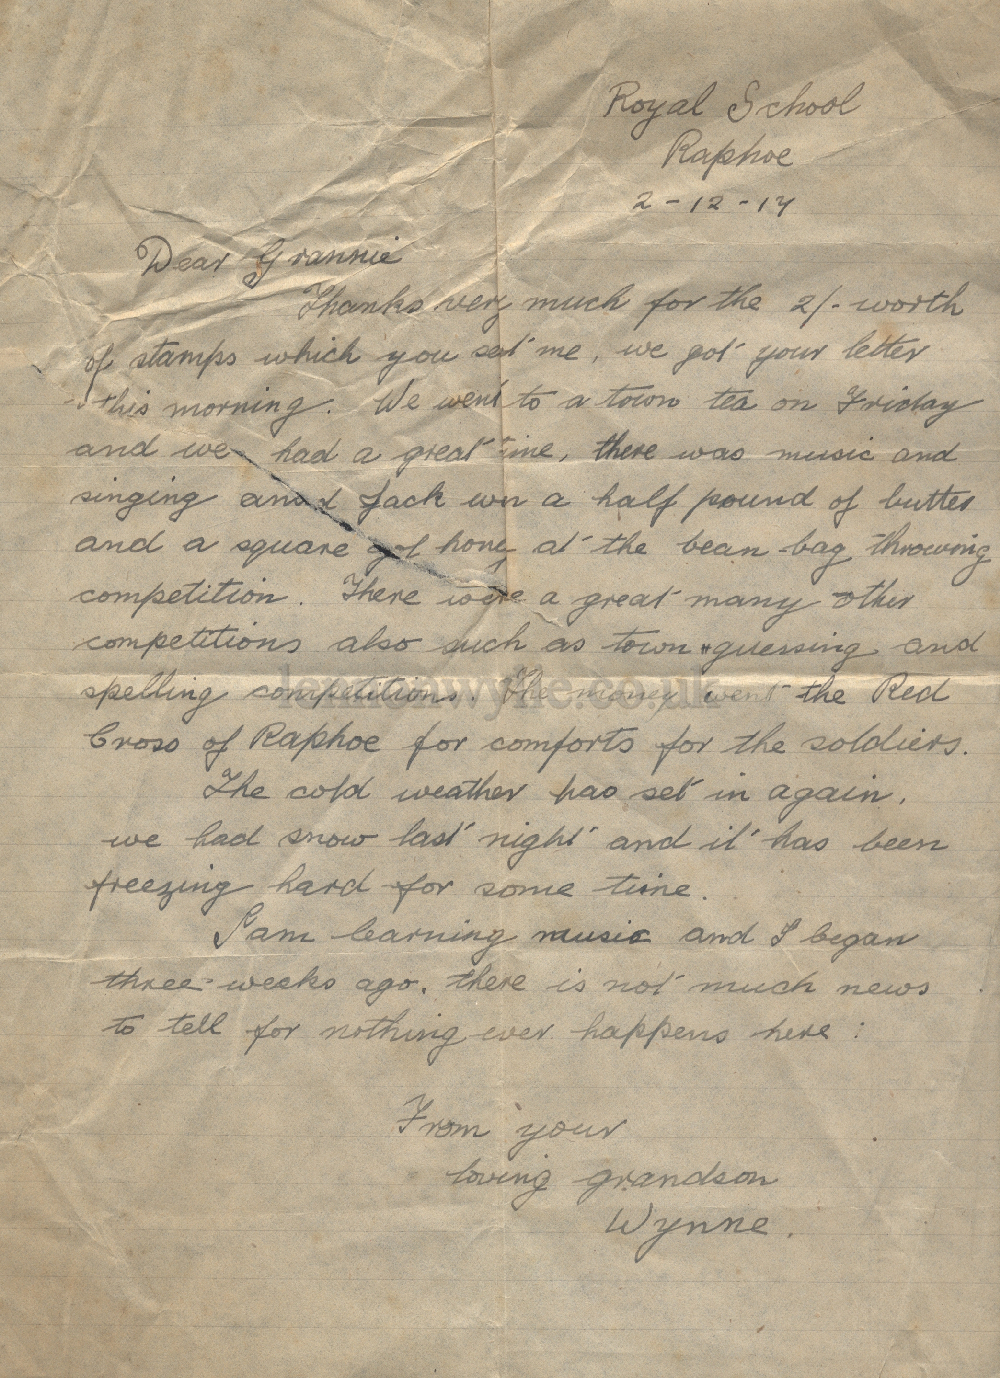 Royal School
Raphoe
2-12-17
Dear Grannie
Thanks very much for the 2/- worth
of stamps which you set me, we got your letter
this morning. We went to a town tea on Friday
and we had a great time, there was music and
singing and Jack wn a half pound of butter
and a square of hony at the bean-bag throwing
competition. There were a great many other
competitions also such as town guessing and
spelling competitions. The money went the Red
Cross of Raphoe for comforts for the soldiers.
The cold weather has set in again,
we had snow last night and it has been
freezing hard for some time.
I am learning music and I began
three weeks ago. there is not much news
to tell for nothing ever happens here :
From your
loving grandson
Wynne.